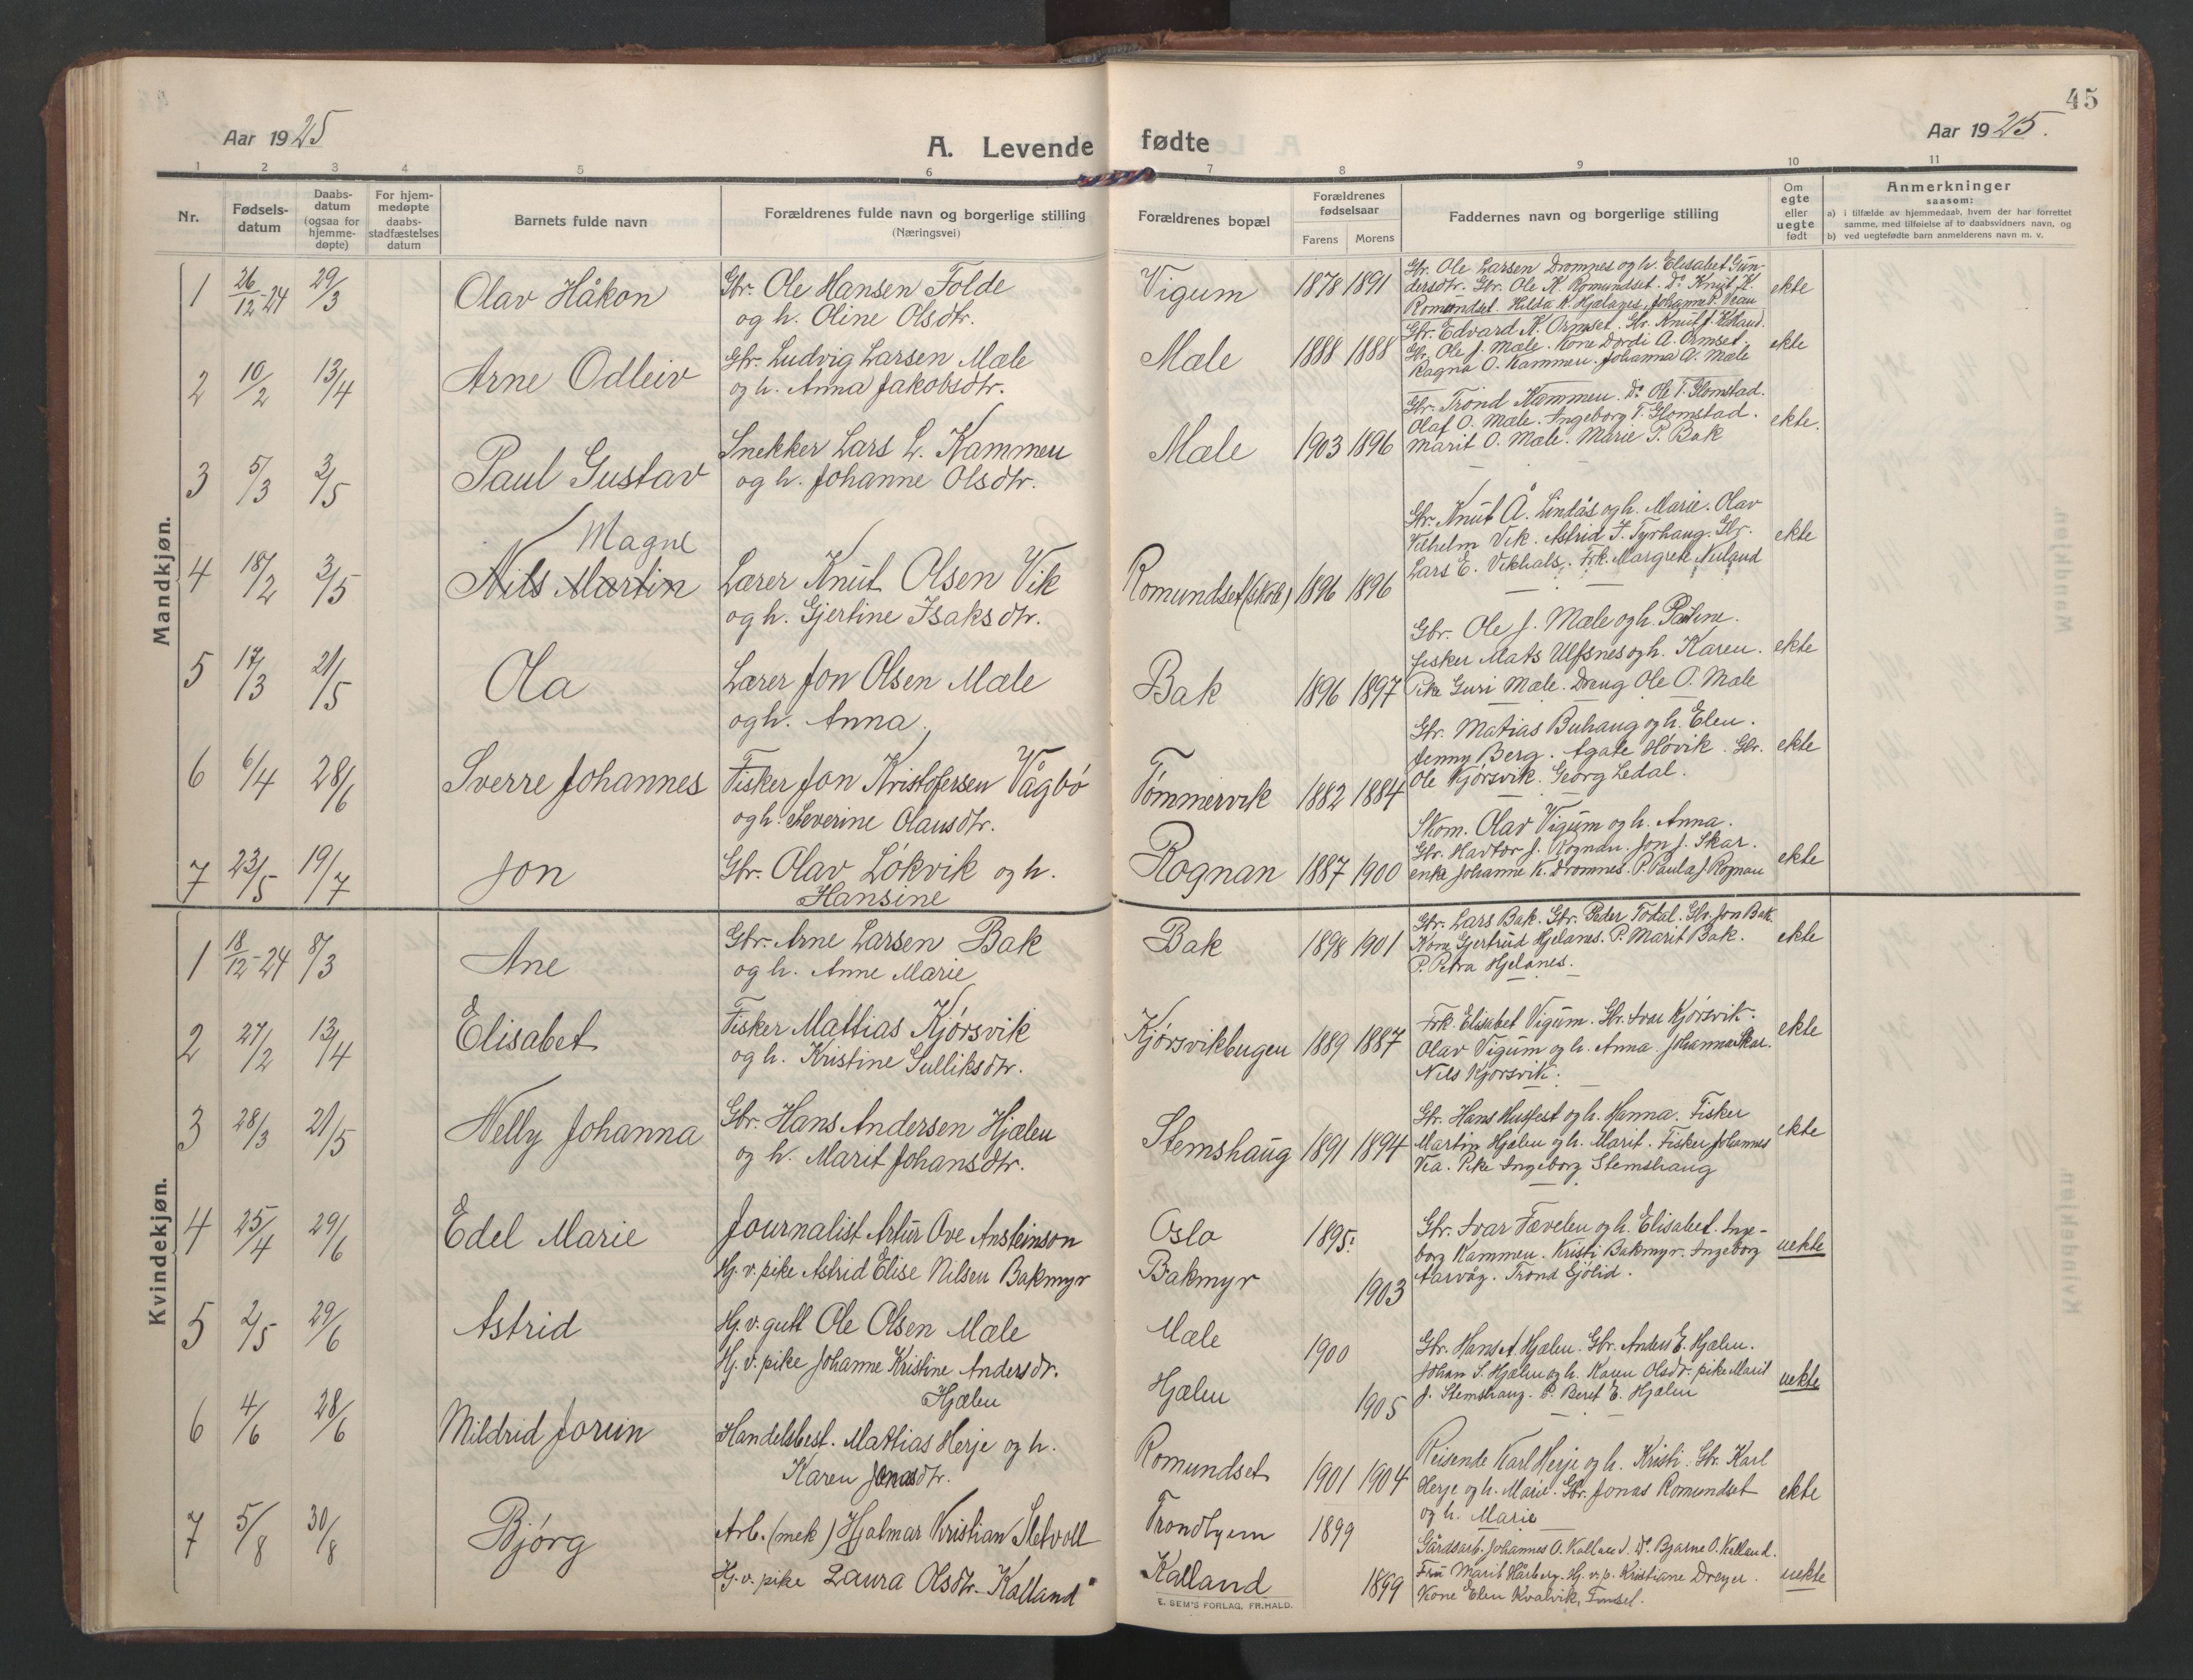 45
Aar 1925
A. Levende fødte
Aar 1925.
1 2 3 4 5 6 7 8 9 10 11
Nr.
Fødsels-
datum
Daabs-
datum
(ogsaa for
hjemme-
døpte)
For hjem-
medøpte
daabs-
stadfæstelses
datum
Barnets fulde navn
Forældrenes fulde navn og borgerlige stilling
(Næringsvei)
Forældrenes bopæl
Forældrenes
fødselsaar
Farens Morens
Faddernes navn og borgerlige stilling
Om
egte
eller
uegte
født
Anmerkninger
saasom:
a) i tilfælde av hjemmedaab, hvem der har forrettet
samme, med tilføielse af to daabsvidners navn, og
b) ved uegtefødte barn anmelderens navn m. v.
Mandkjøn.
1 26/12-24 29/3 Olav Håkon
Gbr. Ole Hansen Folde
og h. Oline Olsdtr.
Vigum 1878 1891
Gbr. Ole Larsen Dromnes og h. Elisabet Gun-
dersdtr. Gbr. Ole K. Romundset. Do Knut K.
Romundset. Hilda K. Hjelanes, Johanne P. Vean
ekte
2 10/2 13/4 Arne Odleiv
Gbr. Ludvig Larsen Mæle
og h. Anna Jakobsdtr.
Mæle 1888 1888
Gbr. Edvard K. Ormset. Gbr. Knut J.
Gbr. Ole J. Mæle. Kone Dordi A. Ormset.
Ragna O. Kammen. Johanna A. Mæle
ekte
3 5/3 3/5 Paul Gustav
Snekker Lars L. Kammen
og h. Johanne Olsdtr.
Mæle 1903 1896
Gbr. Trond Kammen. Do Ole T. Glomstad.
Olaf O. Mæle. Ingeborg T. Glomstad.
Marit O. Mæle. Marie P. Bak
ekte.
4 18/2 3/5 Magne
Nils Martin
Lærer Knut Olsen Vik
og h. Gjertine Isaksdtr.
Romundset (skole) 1896 1896
Gbr. Knut Å. Lindås og h. Marie. Olav
Vilhelm Vik. Astrid J. Tyrhaug. Gbr.
Lars E. Vikhals. Frk. Margrete Neuland
ekte
5 17/3 21/5 Ola
Lærer Jon Olsen Mæle
og h. Anna.
Bak 1896 1897
Gbr. Ole J. Mæle og h. Pauline.
fisker Mats Ulfsnes og h. Karen.
Pike Guri Mæle. Dreng Ole O. Mæle
ekte
6 6/4 28/6 Sverre Johannes
Fisker Jon Kristofersen Vågbø
og h. Severine Olausdtr.
Tømmervik 1882 1884
Gbr. Matias Buhaug og h. Elen.
Jenny Berg. Agate Høvik. Gbr.
Ole Kjørsvik. Georg Ledal.
ekte
7 23/5 19/7 Jon
Gbr. Olav Løkvik og h.
Hansine
Rognan 1887 1900
Skom. Olav Vigum og h. Anna.
Gbr. Havtor J. Rognan. Jon J. Skar.
enke Johanne K. Dromnes. P. Paula J. Rognan
ekte
Kvindekjøn.
1 18/12-24 8/3 Ane
Gbr. Arne Larsen Bak
og h. Anne Marie
Bak 1898 1901
Gbr. Lars Bak. Gbr. Peder Todal. Gbr. Jon Bak.
Kone Gjertrud Hjelanes. P. Marit Bak.
P. Petra Hjelanes.
ekte
2 27/2 13/4 Elisabet
Fisker Mattias Kjørsvik
og h. Kristine Gulliksdtr.
Kjørsvikbugen 1889 1887
Frk. Elisabet Vigum. Gbr. Ivar Kjørsvik.
Olav Vigum og h. Anna. Johanna Skar.
Nils Kjørsvik.
ekte
3 28/3 21/5 Nelly Johanna
Gbr. Hans Andersen Hjælen
og h. Marit Johansdtr.
Stemshaug 1891 1894
Gbr. Hans Husfest og h. Hanna. Fisker
Martin Hjælen og h. Marit. Fisker Johannes
Vea. Pike Ingeborg Stemshaug
ekte
4 25/4 29/6 Edel Marie
Journalist Artur Ove Ansteinson
Hj. v. pike Astrid Elise Nilsen Bakmyr
Oslo 1895.
Bakmyr 1903
Gbr. Ivar Tævelen og h. Elisabet. Inge-
borg Kammen. Kristi Bakmyr. Ingeborg
Aarvåg. Trond Sjølid.
uekte
5 2/5 29/6 Astrid
Hj. v. gutt Ole Olsen Mæle
Hj. v. pike Johanne Kristine Andersdr.
Hjælen
Mæle 1900
Hjælen 1905
Gbr. Hans A. Hjælen. Gbr. Anders E. Hjælen.
Johan S. Hjælen og h. Karen Olsdr. pike Marit
J. Stemshaug. P. Beret E. Hjælen
uekte
6 4/6 28/6 Mildrid Jorun
Handelsbest. Mattias Herje og h.
Karen Jonasdtr.
Romundset 1901 1904
Reisende Karl Herje og h. Kristi. Gbr. Karl
Herje og h. Marie. Gbr. Jonas Romundset
og h. Marie
ekte
7 5/8 30/8 Bjørg
Arb. (mek) Hjalmar Kristian Sletvoll
Hj. v. pike Laura Olsdtr. Kalland
Trondhjem 1899
Kalland 1899
Gårdsarb. Johannes O. Kalland. Do Bjarne O. Kalland.
Fru Marit Hårberg. Hj. v. p. Kristiane Dreyer.
Kone Elen Kvalvik,
uekte
E. SEM'S FORLAG. FR.HALD.